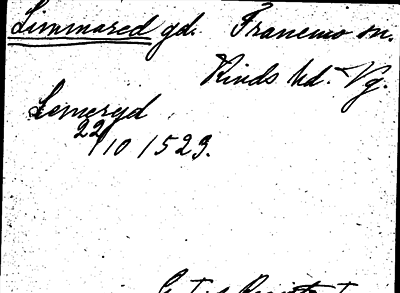 Limmared gd. Tranemo sn.
Kinds hd. Vg.
Lemeryd
22/10 1523.